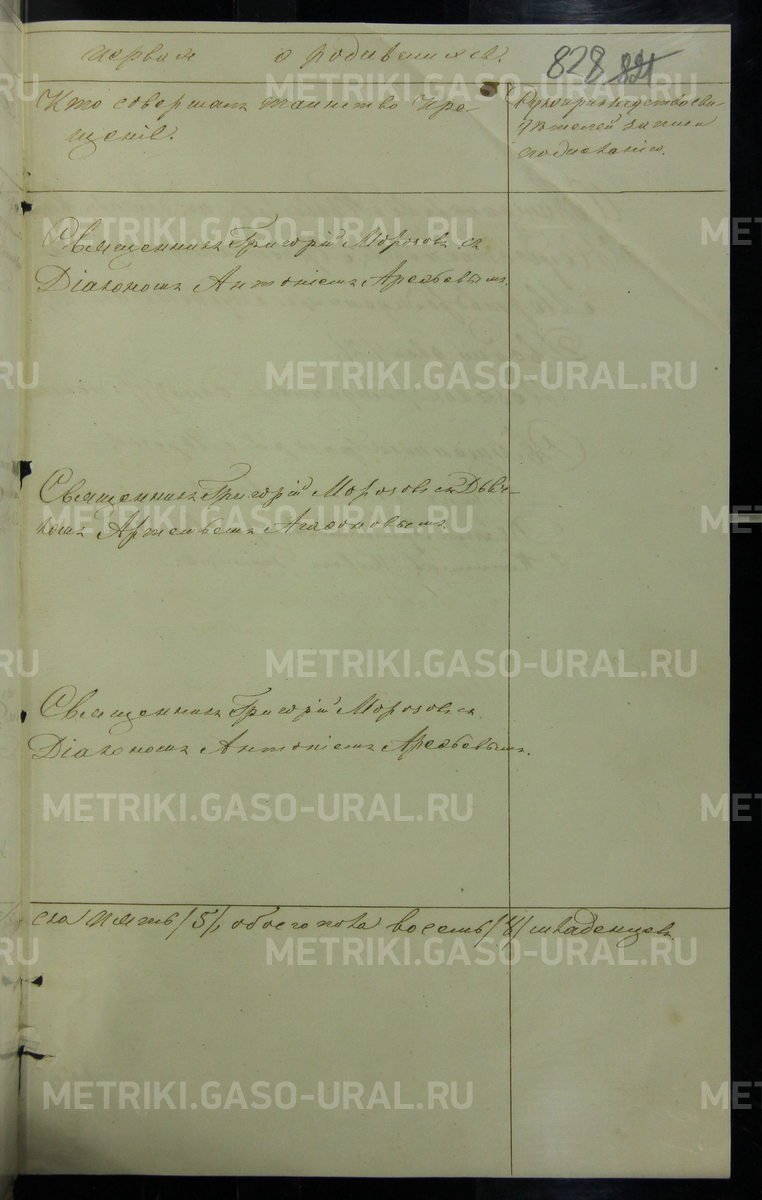 первая о родившихся.
828
Кто совершалъ таинство кре-
щенiя.
Рукоприкладство сви-
дѣтелей записи
по желанiю.
Священникъ Григорiй Морозовъ съ
Дiакономъ Антонiемъ Арефьевымъ.
Священникъ Григорiй Морозовъ съ Дьяч-
комъ Артемьемъ Агафоновымъ.
Священникъ Григорiй Морозовъ съ
Дiакономъ Антонiемъ Арефьевымъ.
ска пять /5/, обоего пола восемь /8/ младенцевъ.
METRIKI.GASO-URAL.RU